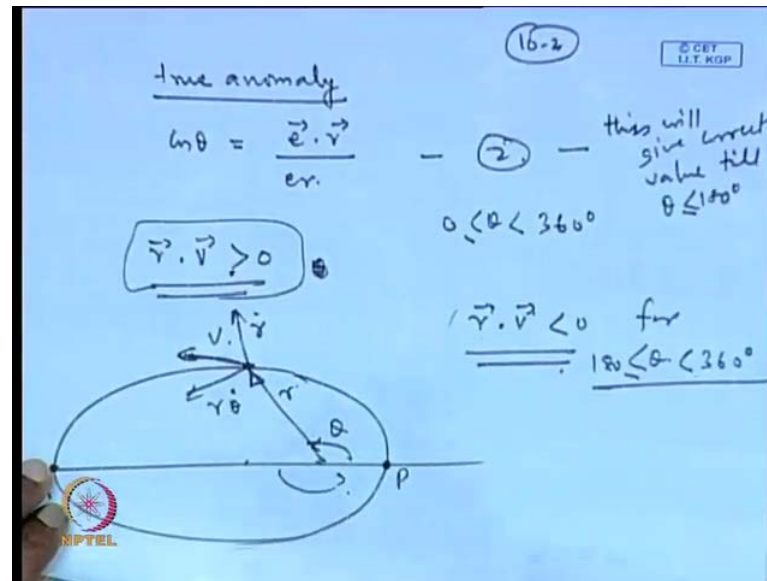 16-2
© CET
I.I.T. KGP
true anomaly
cos θ = e⃗ · r⃗ / er. – ② – this will
give correct
value till
θ ≤ 180°
0 ≤ θ < 360°
r⃗ · v⃗ > 0
r⃗ · v⃗ < 0 for
180 ≤ θ < 360°
V. ṙ
r θ̇ r θ
P
NPTEL